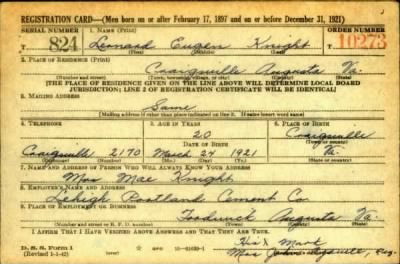 REGISTRATION CARD—(Men born on or after February 17, 1897 and on or before December 31, 1921)
SERIAL NUMBER 1. NAME (Print) ORDER NUMBER
T 824 Leonard Eugen Knight 10273
(First) (Middle) (Last)
2. PLACE OF RESIDENCE (Print)
Craigsville Augusta Va.
(Number and street) (Town, township, village, or city) (County) (State)
[THE PLACE OF RESIDENCE GIVEN ON THE LINE ABOVE WILL DETERMINE LOCAL BOARD
JURISDICTION; LINE 2 OF REGISTRATION CERTIFICATE WILL BE IDENTICAL]
3. MAILING ADDRESS
Same
[Mailing address if other than place indicated on line 2. If same insert word same]
4. TELEPHONE 5. AGE IN YEARS 6. PLACE OF BIRTH
20 Craigsville
DATE OF BIRTH (Town or county)
Craigsville 2170 March 24 1921 Va.
(Exchange) (Number) (Mo.) (Day) (Yr.) (State or country)
7. NAME AND ADDRESS OF PERSON WHO WILL ALWAYS KNOW YOUR ADDRESS
Mae Knight
8. EMPLOYER'S NAME AND ADDRESS
Lehigh Portland Cement Co.
9. PLACE OF EMPLOYMENT OR BUSINESS
Augusta Va.
(Number and street or R. F. D. number) (Town) (County) (State)
I AFFIRM THAT I HAVE VERIFIED ABOVE ANSWERS AND THAT THEY ARE TRUE.
D. S. S. Form 1 His X Mark
(Revised 1-1-42) GPO 16-21630-1